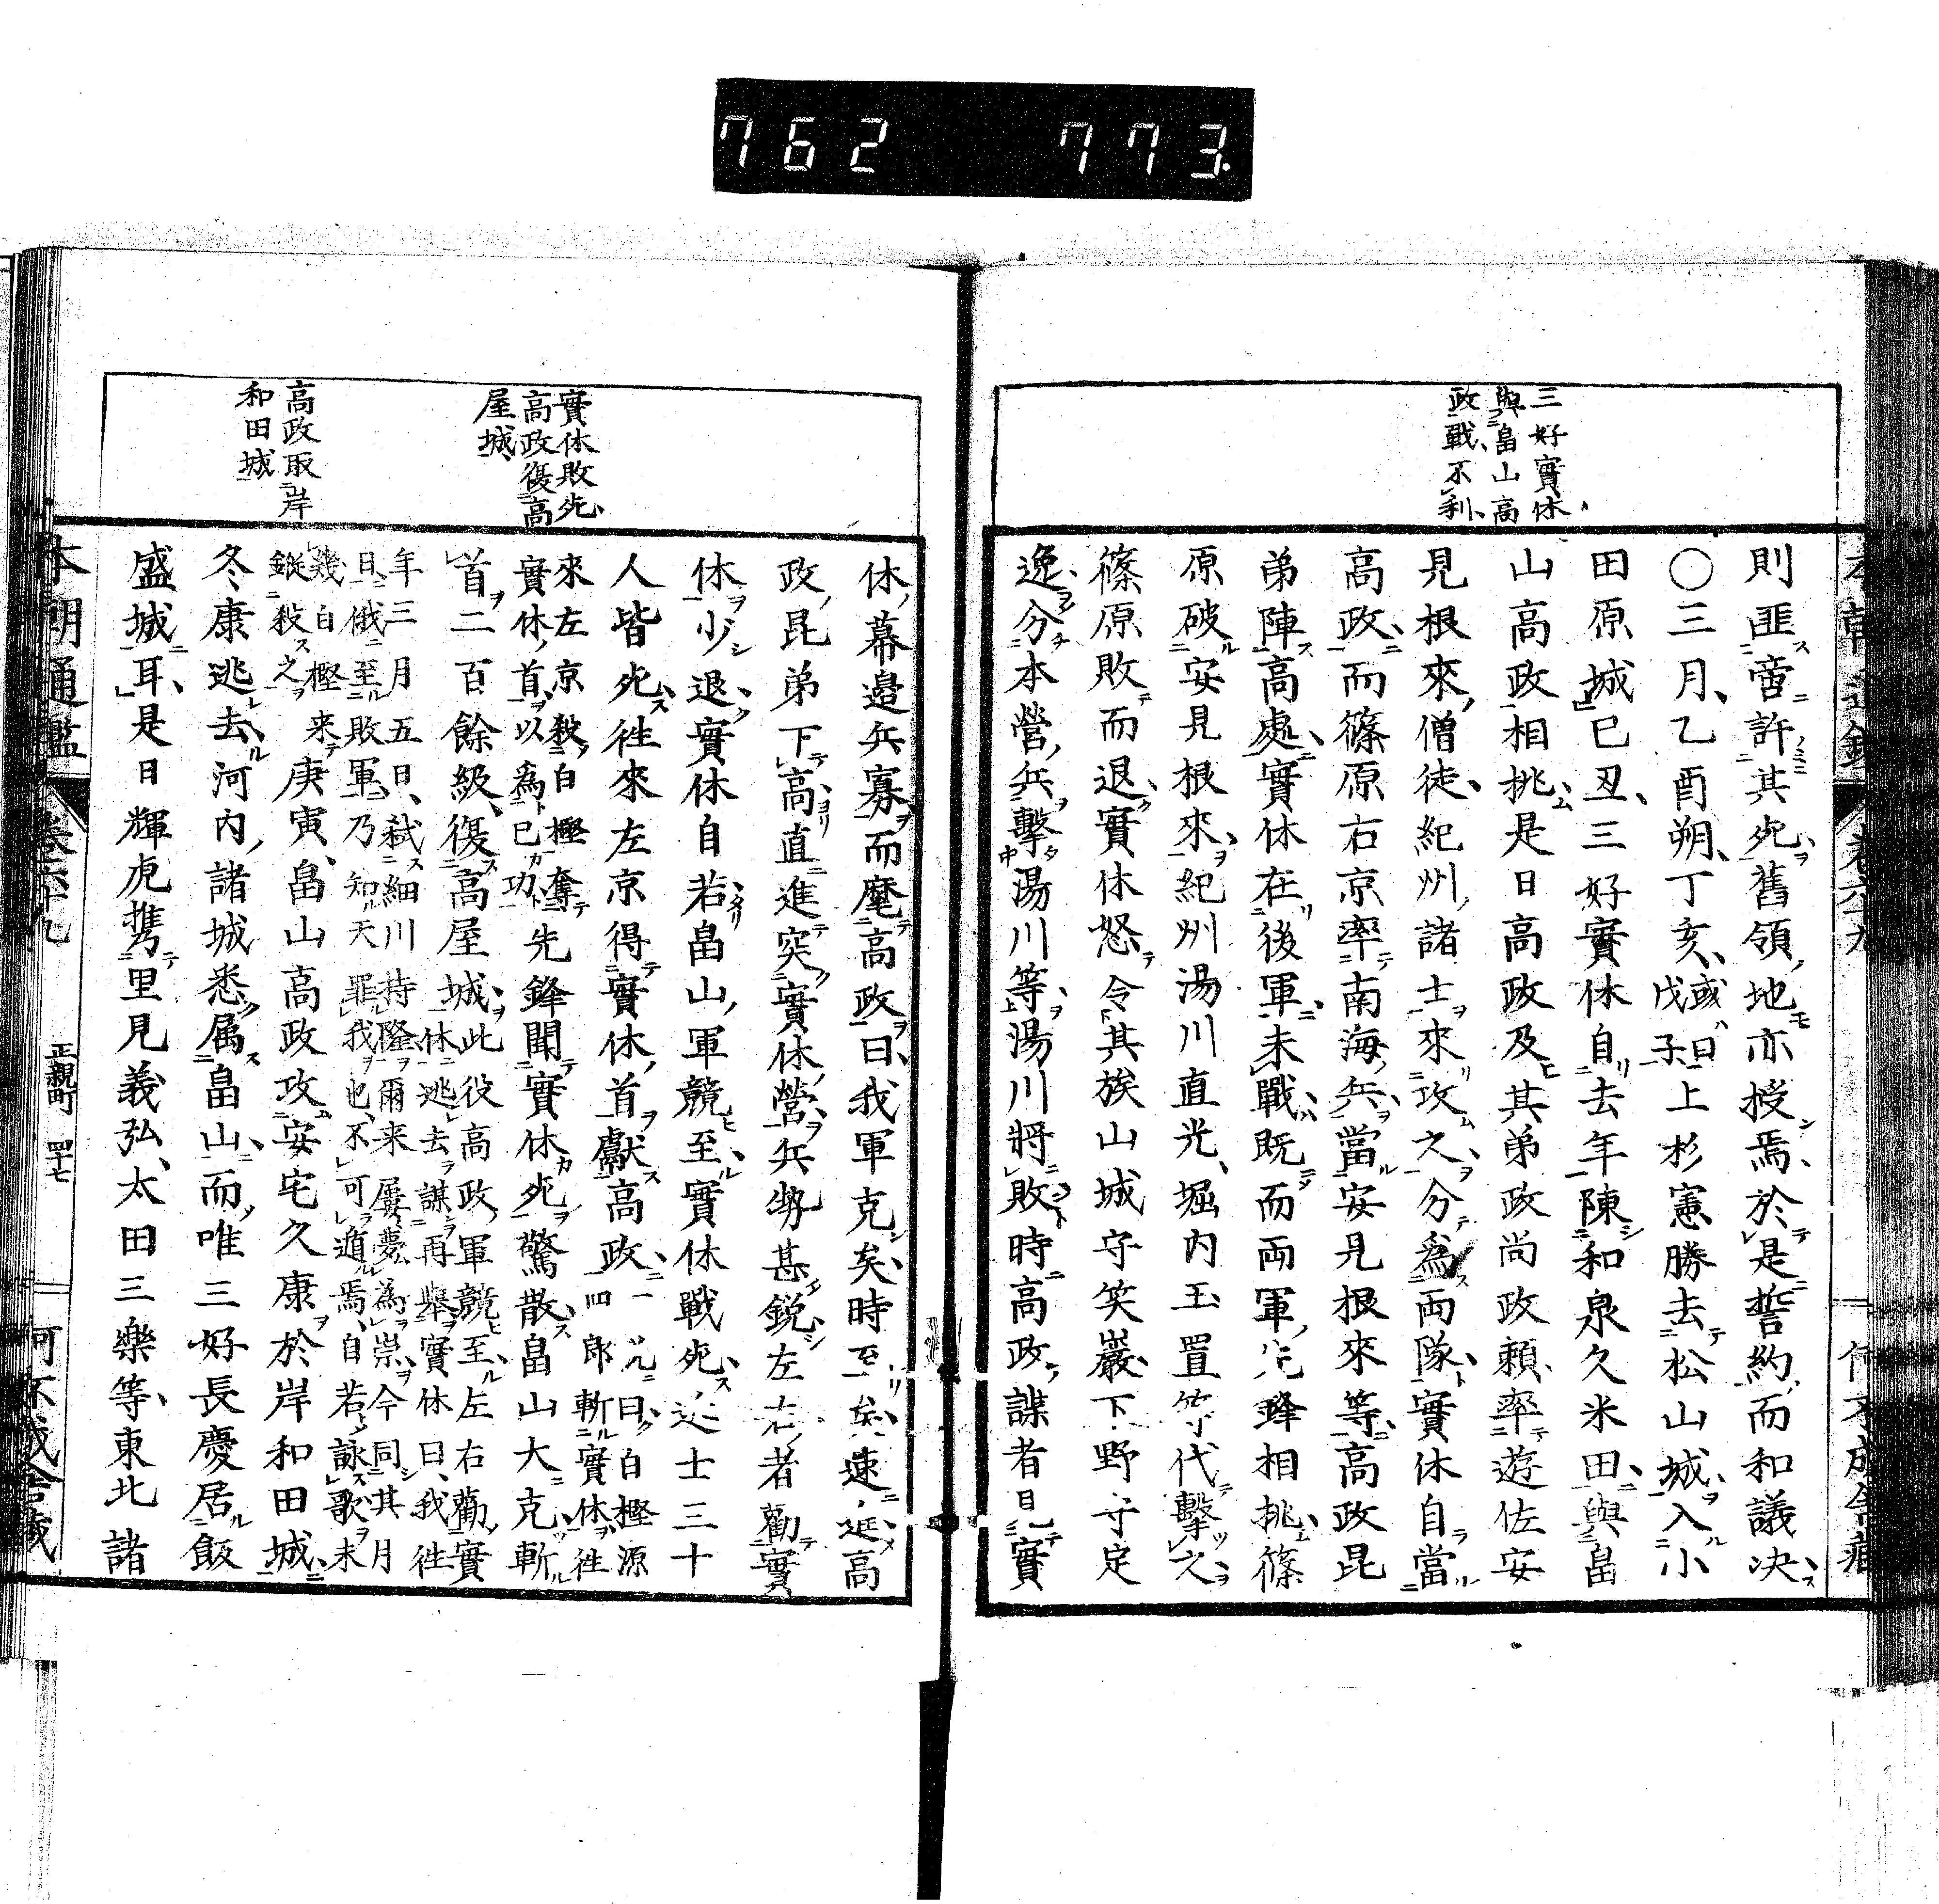 762 773
三好實休
與畠山高
政戰不利
則匪啻許其死舊領地亦授焉於是誓約而和議决
〇三月乙酉朔丁亥或曰戊子上杉憲勝去松山城入小
田原城己丑三好實休自去年陳和泉久米田與畠
山高政相挑是日高政及其弟政尚政賴率遊佐安
見根來僧徒紀州諸士來攻之分爲兩隊實休自當
高政而篠原右京率南海兵當安見根來等高政昆
弟陣高處實休在後軍未戰既而兩軍先鋒相挑篠
原破安見根來紀州湯川直光堀内玉置等代擊之
篠原敗而退實休怒令其族山城守笑巖下野守定
逸分本營兵擊湯川等湯川將敗時高政諜者見實
休幕邉兵寡而麾高政曰我軍克矣時至矣速進高
政昆弟下高直進突實休營兵勢甚鋭左右者勸實
休少退實休自若畠山軍競至實休戰死近士三十
人皆死徃來左京得實休首獻高政一説曰白樫源四郎斬實休徃
來左京殺白樫奪實休首以爲己功先鋒聞實休死驚散畠山大克斬
首二百餘級復高屋城此役高政軍競至左右勸實休逃去謀再舉實休曰我徃
年三月五日弑細川持隆爾来屢夢爲祟今同其月日俄至敗軍乃知天罪我也不可遁焉自若詠歌未
幾白樫来鎚殺之庚寅畠山高政攻安宅久康於岸和田城
冬康逃去河内諸城悉属畠山而唯三好長慶居飯
盛城耳是日輝虎携里見義弘太田三樂等東北諸
實休敗死
高政復高
屋城
高政取岸
和田城
本朝通鑑 卷六十九 正親町 四十七